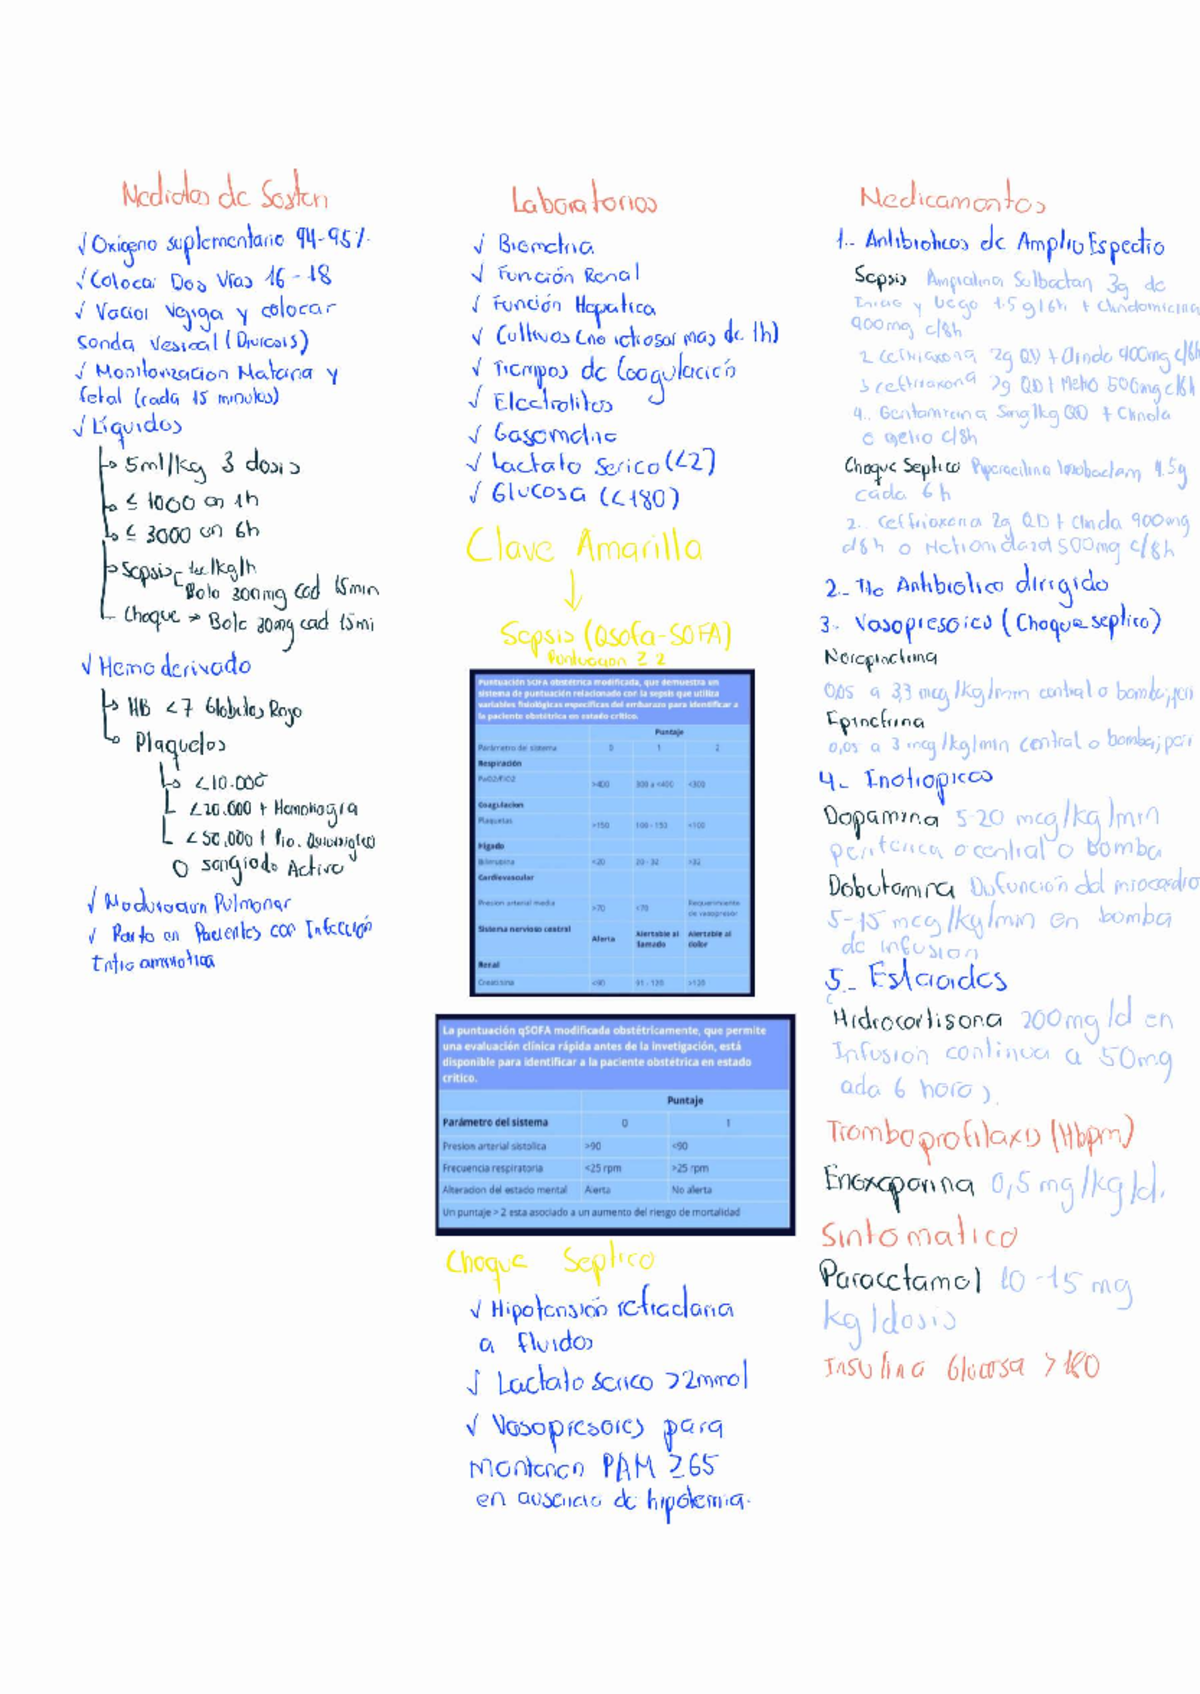 Medidas de Sosten
√ Oxigeno suplementario 94-95%
√ Coloca: Dos Vías 16-18
√ Vaciar Vejiga y colocar
sonda vesical (Diuresis)
√ Monitorización Materna y
fetal (cada 15 minutos)
√ Líquidos
→ 5ml/kg 3 dosis
→ ≤ 1000 en 1h
→ ≤ 3000 en 6h
→ Sepsis /kg/h
Bolo 300mg cad 15min
Choque → Bolo 30mg cad 15mi
√ Hemoderivado
→ HB <7 Globulos Rojo
→ Plaquetas
→ <10.000
<20.000 + Hemorragia
<50.000 + Pro. Quirurgico
o sangrado Activo
√ Pulmonar
√ Parto en Pacientes con Infección
Intraamniotica
Laboratorios
√ Biometria
√ Función Renal
√ Función Hepatica
√ Cultivos (no retrasar mas de 1h)
√ Tiempos de Coagulación
√ Electrolitos
√ Gasometria
√ Lactato Serico (<2)
√ Glucosa (<180)
Clave Amarilla
↓
Sepsis (Qsofa-SOFA)
Puntuacion ≥ 2
Puntuación SOFA obstétrica modificada, que demuestra en
sistema de puntuación relacionado con la sepsis que utiliza
variables fisiológicas específicas del embarazo para identificar a
la paciente obstétrica en estado crítico.
Puntaje
Parámetro de sistema 0 1 2
Respiración
PaO2/FiO2 >400 300 a <400 <300
Coagulacion
Plaquetas >150 100 - 150 <100
Hígado
Bilirrubina <20 20 - 32 >32
Cardiovascular
Presion arterial media >70 <70 Requerimiento
de vasopresor
Sistema nervioso central Alerta Alertable al
llamado Alertable al
dolor
Renal
Creatinina <90 91 - 120 >120
La puntuación qSOFA modificada obstétricamente, que permite
una evaluación clínica rápida antes de la invetigación, está
disponible para identificar a la paciente obstétrica en estado
critico.
Puntaje
Parámetro del sistema 0 1
Presion arterial sistolica >90 <90
Frecuencia respiratoria <25 rpm >25 rpm
Alteracion del estado mental Alerta No alerta
Un puntaje > 2 esta asociado a un aumento del riesgo de mortalidad
Choque Septico
√ Hipotensión refractaria
a fluidos
√ Lactato serico >2mmol
√ Vasopresores para
mantener PAM ≥65
en ausencia de hipolemia.
Medicamentos
1.- Antibioticos de Amplio Espectro
Sepsis Ampicilina Sulbactan 3g de
Inicio y luego 1.5 g/6h + Clindamicina
900mg c/8h
2 ceftriaxona 2g QD + Clinda 900mg c/8h
3 ceftriaxona 2g QD + Metro 500mg c/8h
4.. Gentamicina 5mg/kg QD + Clinda
o metro c/8h
Choque Septico Piperacilina tazobactam 4.5g
cada 6h
2.. Ceftriaxona 2g QD + Clinda 900mg
c/8h o Metronidazol 500mg c/8h
2.- Tto Antibiotico dirigido
3. Vasopresoics (Choque septico)
Norepinefrina
0,05 a 3,3 mcg/kg/min central o bomba; peri
Epinefrina
0,05 a 3 mcg/kg/min central o bomba; peri
4.- Inotropicos
Dopamina 5-20 mcg/kg/min
periferica o central o bomba
Dobutamina Disfunción del miocardio
5-15 mcg/kg/min en bomba
de infusion
5.- Esteroides
Hidrocortisona 200mg/d en
Infusion continua a 50mg
cada 6 horas.
Tromboprofilaxis (Hbpm)
Enoxaparina 0,5 mg/kg/d.
Sintomatico
Paracetamol 10-15 mg
kg/dosis
Insulina Glucosa >180